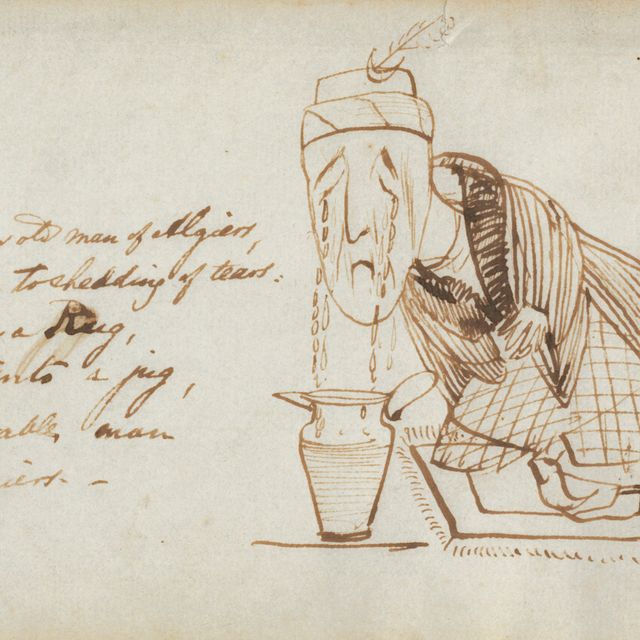 old man of Algiers,
to shedding of tears.
a Rug,
into a jug,
man